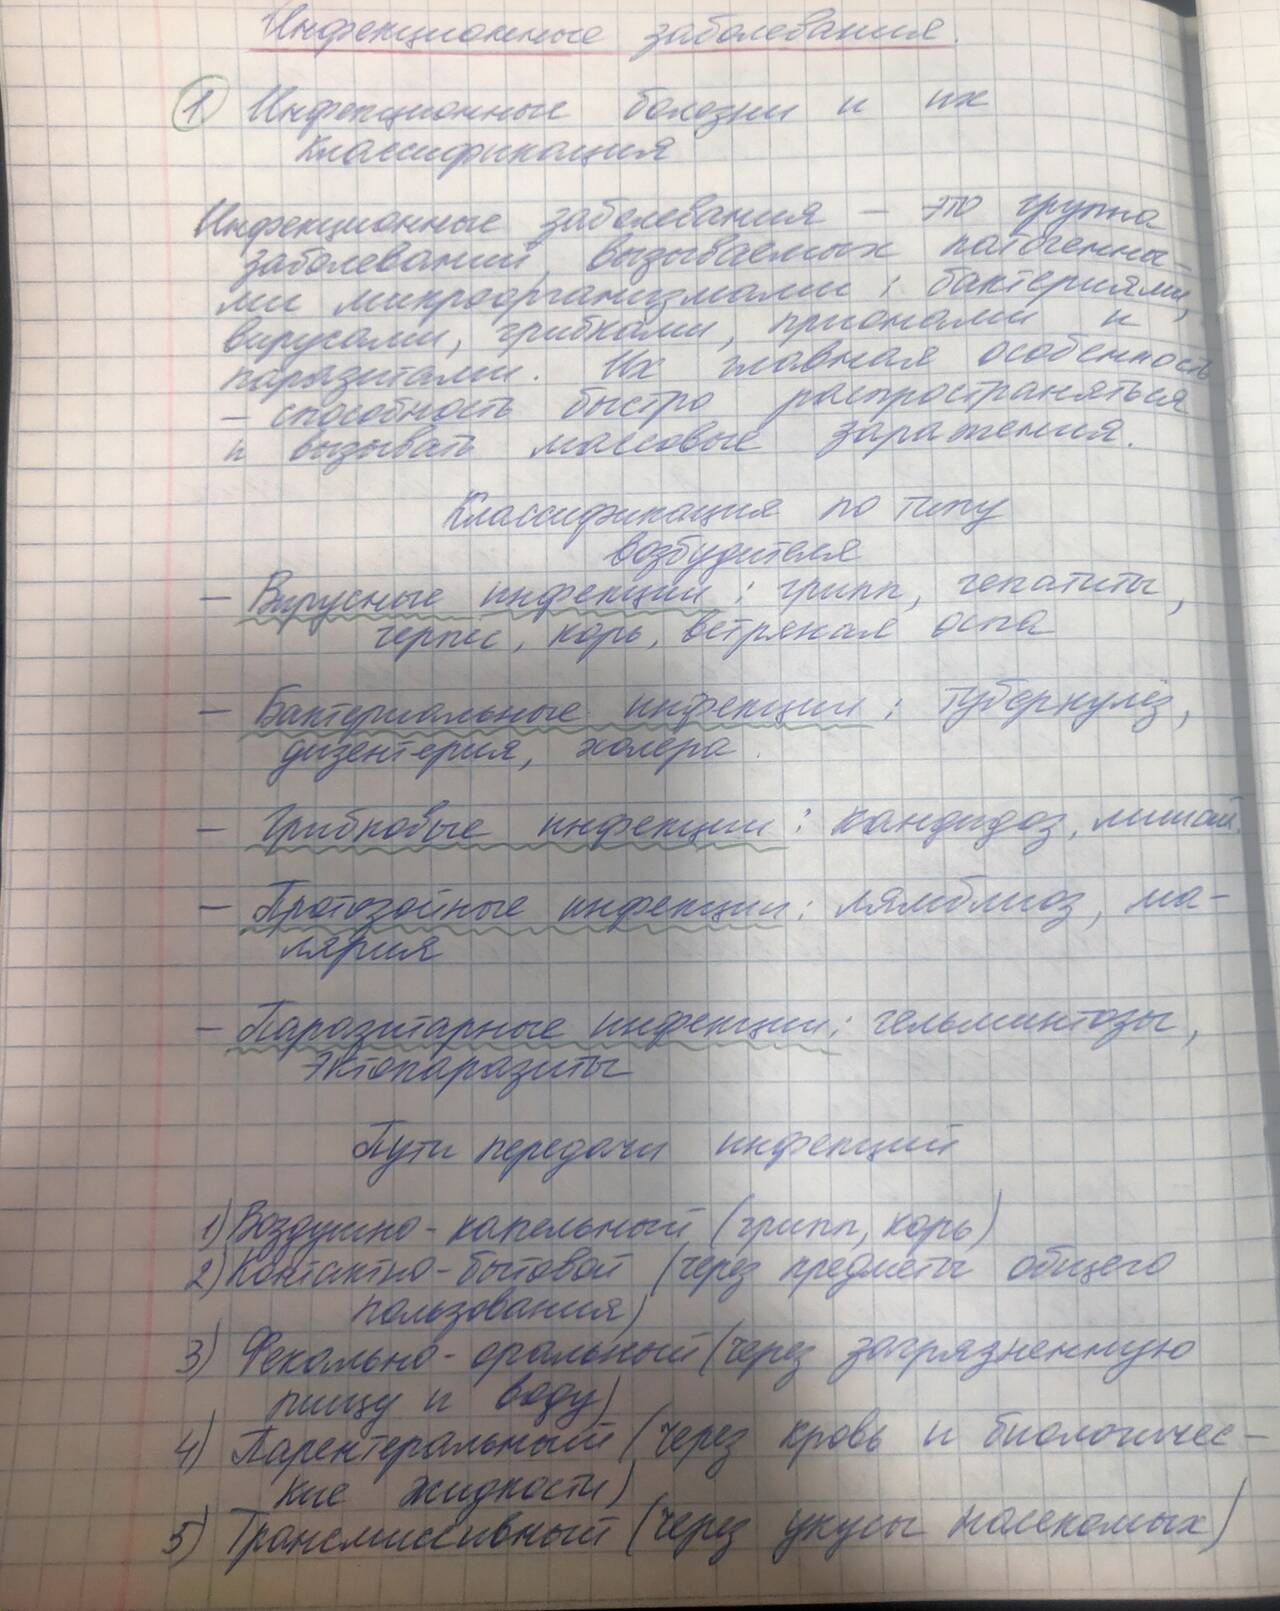 Инфекционные заболевания.
1. Инфекционные болезни и их
классификация
Инфекционные заболевания – это группа
заболеваний, вызываемых патогенны-
ми микроорганизмами: бактериями,
вирусами, грибками, прионами и
паразитами. Их главная особенность
– способность быстро распространяться
и вызывать массовые заражения.
Классификация по типу
возбудителя
– Вирусные инфекции: грипп, гепатиты,
герпес, корь, ветряная оспа
– Бактериальные инфекции: туберкулёз,
дизентерия, холера.
– Грибковые инфекции: кандидоз, лишай.
– Протозойные инфекции: лямблиоз, ма-
лярия
– Паразитарные инфекции: гельминтозы,
эктопаразиты
Пути передачи инфекций
1) Воздушно-капельный (грипп, корь)
2) Контактно-бытовой (через предметы общего
пользования)
3) Фекально-оральный (через загрязненную
пищу и воду)
4) Парентеральный (через кровь и биологичес-
кие жидкости)
5) Трансмиссивный (через укусы насекомых)